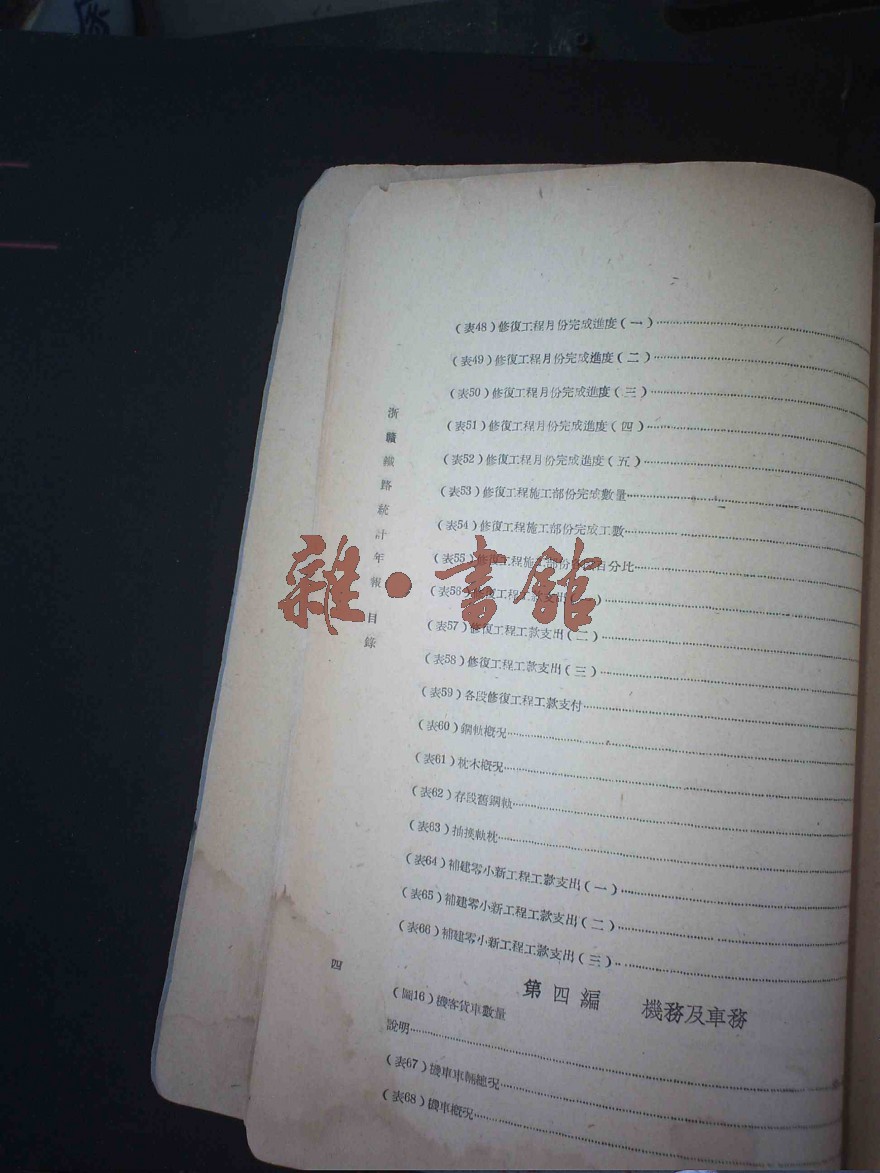 (表48)修復工程月份完成進度(一)
(表49)修復工程月份完成進度(二)
(表50)修復工程月份完成進度(三)
(表51)修復工程月份完成進度(四)
(表52)修復工程月份完成進度(五)
(表53)修復工程施工部份完成數量
(表54)修復工程施工部份完成工數
(表55)修復工程施工部份 百分比
(表56)修復工程工款支出(一)
(表57)修復工程工款支出(二)
(表58)修復工程工款支出(三)
(表59)各段修復工程工款支付
(表60)鋼軌概況
(表61)枕木概況
(表62)存段舊鋼軌
(表63)抽換軌枕
(表64)補建零小新工程工款支出(一)
(表65)補建零小新工程工款支出(二)
(表66)補建零小新工程工款支出(三)
第四編 機務及車務
(圖16)機客貨車數量
說明
(表67)機車車輛總況
(表68)機車概況
浙贛鐵路統計年報 目錄
四
雜·書館